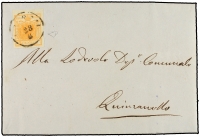 Alla Lodevole Dep.e Comunale
Quinzanello